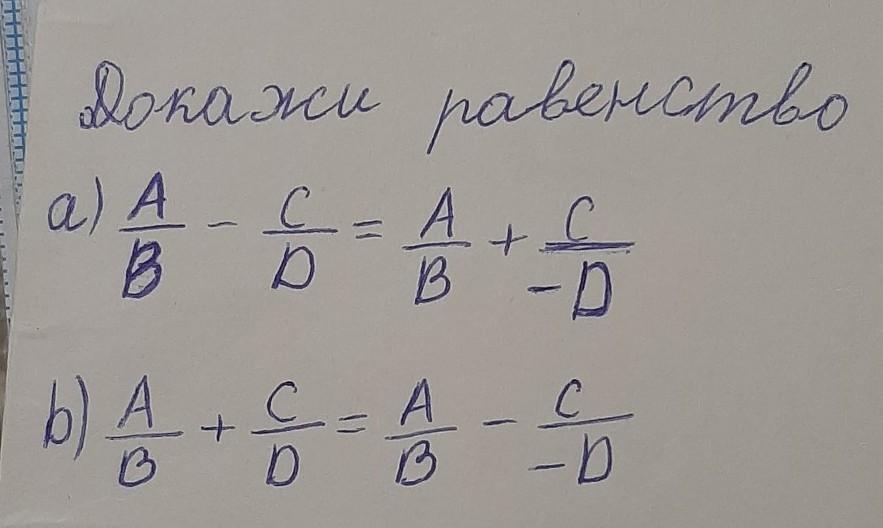 Докажи равенство
a) A/B - C/D = A/B + C/-D
b) A/B + C/D = A/B - C/-D